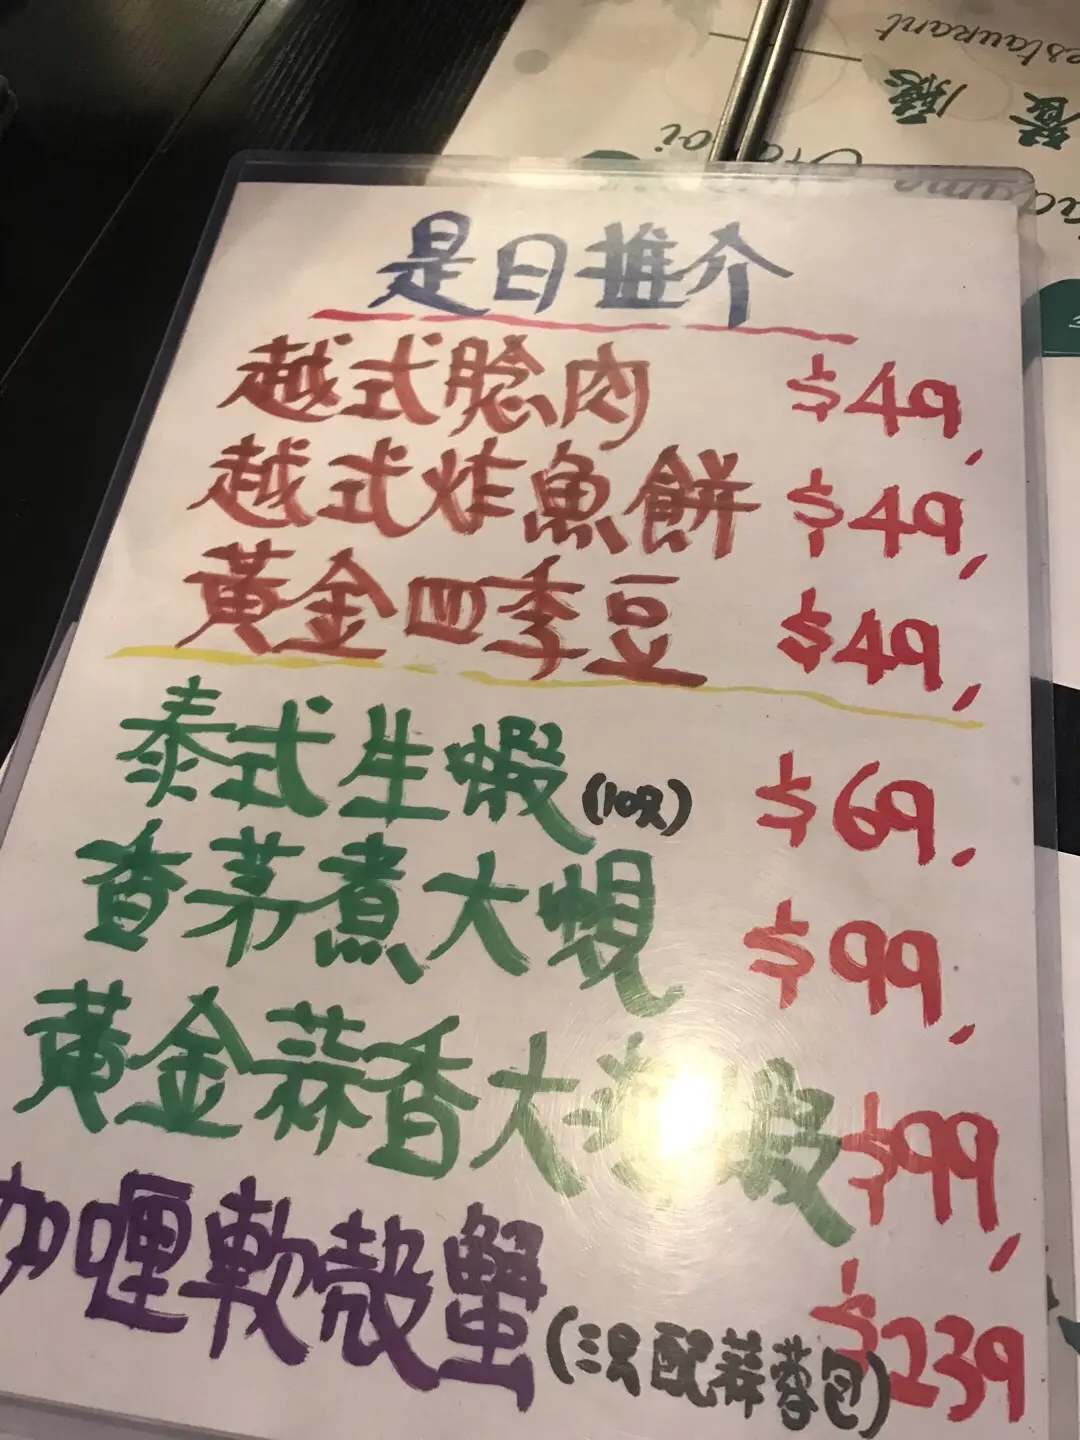 estaurant
餐廳
是日推介
越式腍肉 $49,
越式炸魚餅 $49,
黃金四季豆 $49,
泰式生蝦 (10只) $69,
香茅煮大蜆 $99,
黃金蒜香大 蝦 $99,
咖喱軟殼蟹 (三只配蒜蓉包) $239